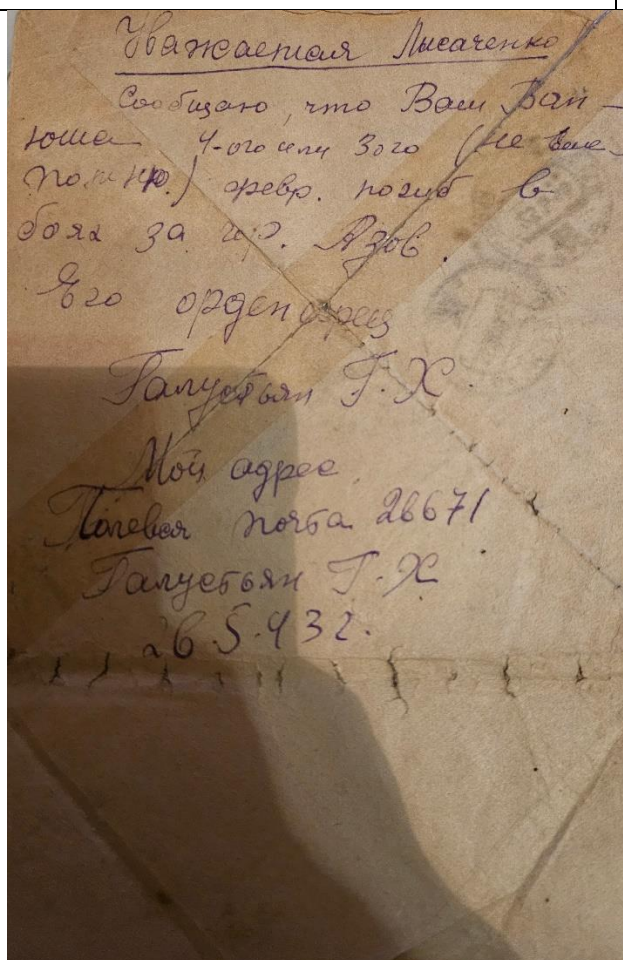 Уважаемая Лысаченко
Сообщаю, что Ваш Ван-
юша 4-ого или 3ого (не
помню) февр. погиб в
боях за гор. Азов.
Его орденарец
Галустьян Г. Х.
Мой адрес
Полевая почта 28671
Галустьян Г. Х
26.5.43 г.